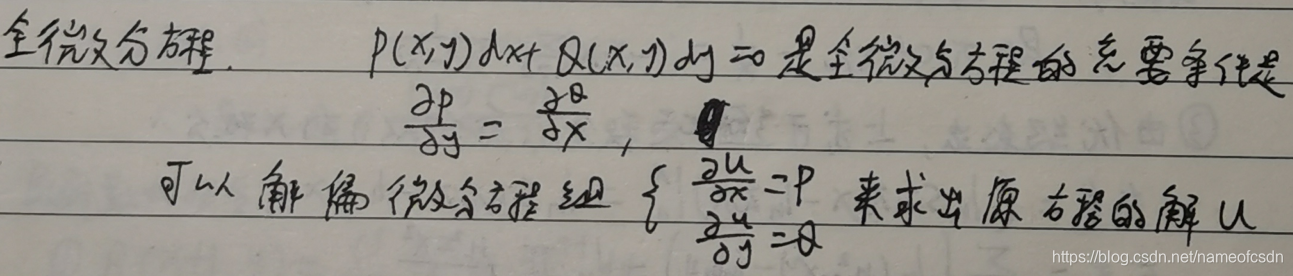 全微分方程. P(x,y)dx+Q(x,y)dy=0 是全微分方程的充要条件是
∂P/∂y = ∂Q/∂x ,
可以解偏微分方程组 { ∂u/∂x = P 来求出原方程的解 u
∂u/∂y = Q
https://blog.csdn.net/nameofcsdn